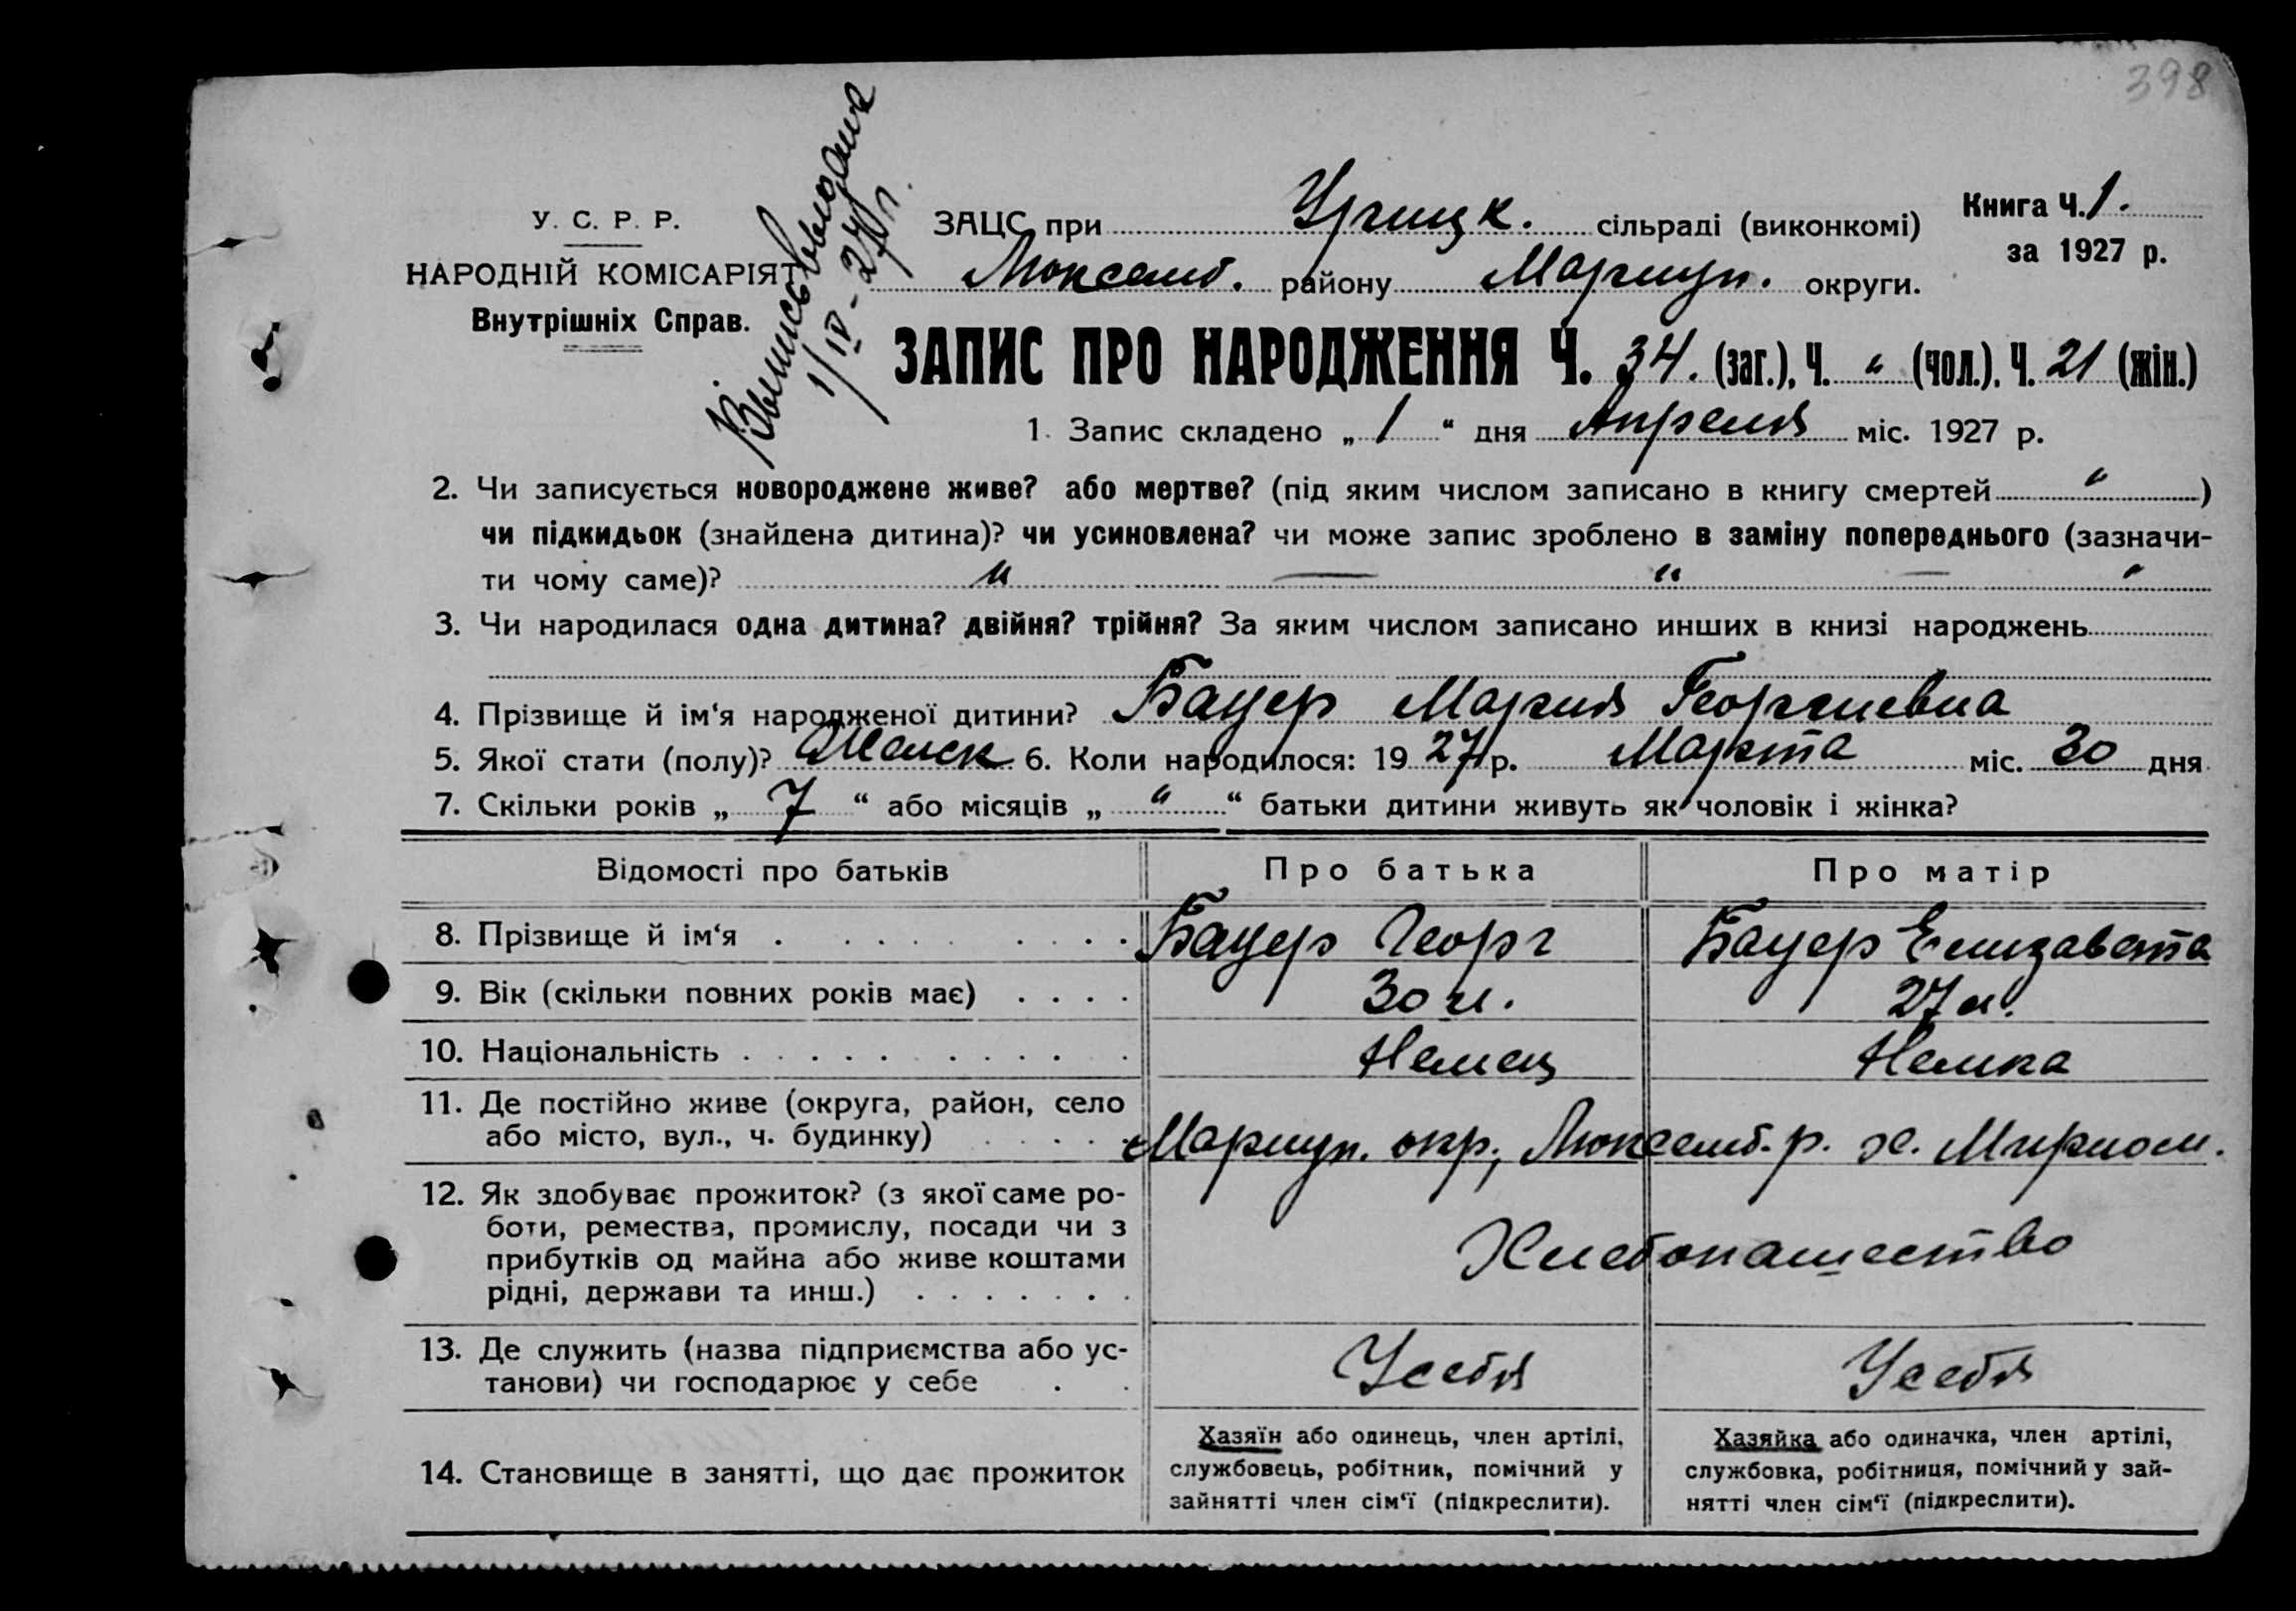 398
У. С. Р. Р.
НАРОДНІЙ КОМІСАРІЯТ
Внутрішніх Справ.
Выпись выдана
1/IV-27 г.
ЗАЦС при Урицк. сільраді (виконкомі)
Люксемб. району Мариуп. округи.
Книга Ч. 1.
за 1927 р.
ЗАПИС ПРО НАРОДЖЕННЯ Ч. 34. (заг.), Ч. „ (чол.), Ч. 21 (жін.)
1. Запис складено „ 1 “ дня Апреля міс. 1927 р.
2. Чи записується новороджене живе? або мертве? (під яким числом записано в книгу смертей „ )
чи підкидьок (знайдена дитина)? чи усиновлена? чи може запис зроблено в заміну попереднього (зазначи-
ти чому саме)? „ — „ — „
3. Чи народилася одна дитина? двійня? трійня? За яким числом записано инших в книзі народжень
4. Прізвище й ім‘я народженої дитини? Бауер Мария Георгиевна
5. Якої стати (полу)? Женск 6. Коли народилося: 1927 р. Марта міс. 30 дня
7. Скільки років „ 7 “ або місяців „ „ “ батьки дитини живуть як чоловік і жінка?
Відомості про батьків Про батька Про матір
8. Прізвище й ім‘я Бауер Георг Бауер Елизавета
9. Вік (скільки повних років має) 30 л. 27 л.
10. Національність Немец Немка
11. Де постійно живе (округа, район, село
або місто, вул., ч. будинку) Мариуп. окр., Люксемб. р. х. Мирном.
12. Як здобуває прожиток? (з якої саме ро-
боти, ремества, промислу, посади чи з
прибутків од майна або живе коштами
рідні, держави та инш.) Хлебопашество
13. Де служить (назва підприємства або ус-
танови) чи господарює у себе У себя У себя
14. Становище в занятті, що дає прожиток
Хазяїн або одинець, член артілі,
службовець, робітник, помічний у
зайнятті член сім‘ї (підкреслити).
Хазяйка або одиначка, член артілі,
службовка, робітниця, помічний у зай-
нятті член сім‘ї (підкреслити).